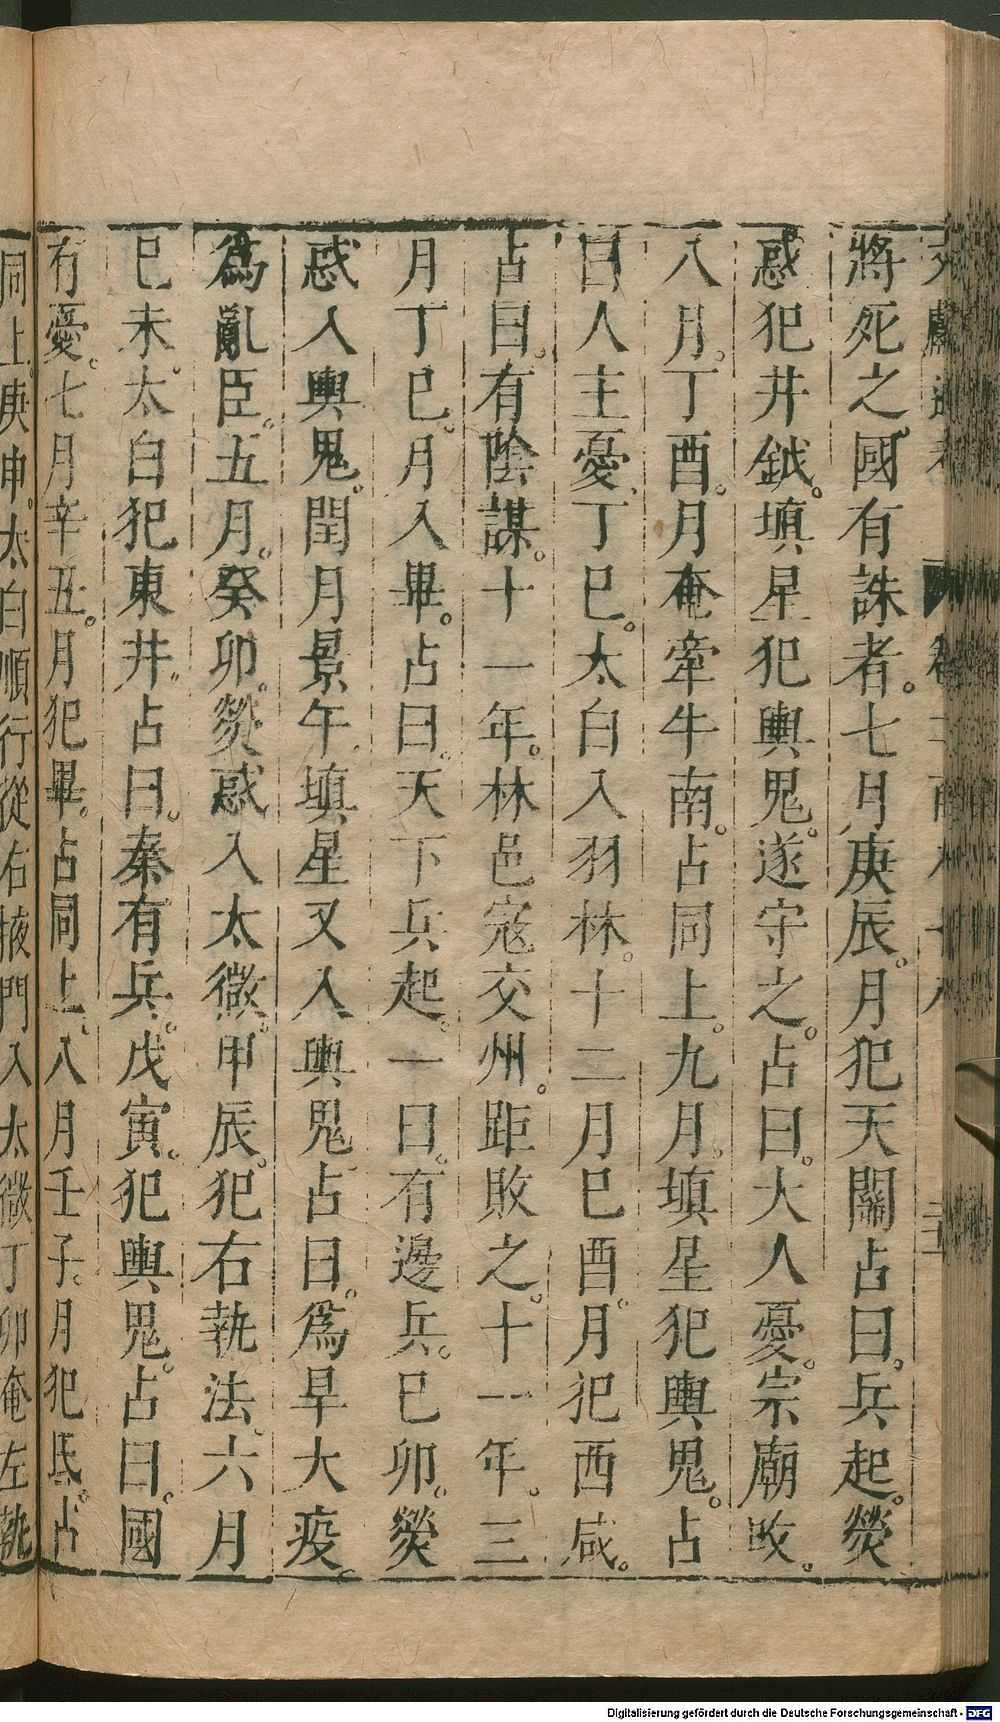 將死之國有誅者。七月庚辰。月犯天關占曰。兵起。熒
惑犯井鉞。塡星犯輿鬼。遂守之。占曰。大人憂。宗廟改。
八月。丁酉。月奄牽牛南。占同上。九月。塡星犯輿鬼。占
曰人主憂、丁巳。太白入羽林。十二月巳酉。月犯西咸。
占曰。有陰謀。十一年。林邑寇交州。距敗之。十一年。三
月丁巳。月入畢。占曰。天下兵起。一曰。有邊兵。巳卯。熒
惑入輿鬼。閏月景午。塡星又入輿鬼占曰。爲旱大疫。
爲亂臣。五月。癸卯。熒惑入太微。甲辰。犯右執法。六月
巳未。太白犯東井。占曰。秦有兵。戊寅。犯輿鬼。占曰。國
有憂。七月辛丑。月犯畢。占同上、八月壬子。月犯氐。占
同上。庚申。太白順行從右掖門入太微丁卯奄左執
Digitalisierung gefördert durch die Deutsche Forschungsgemeinschaft - DFG